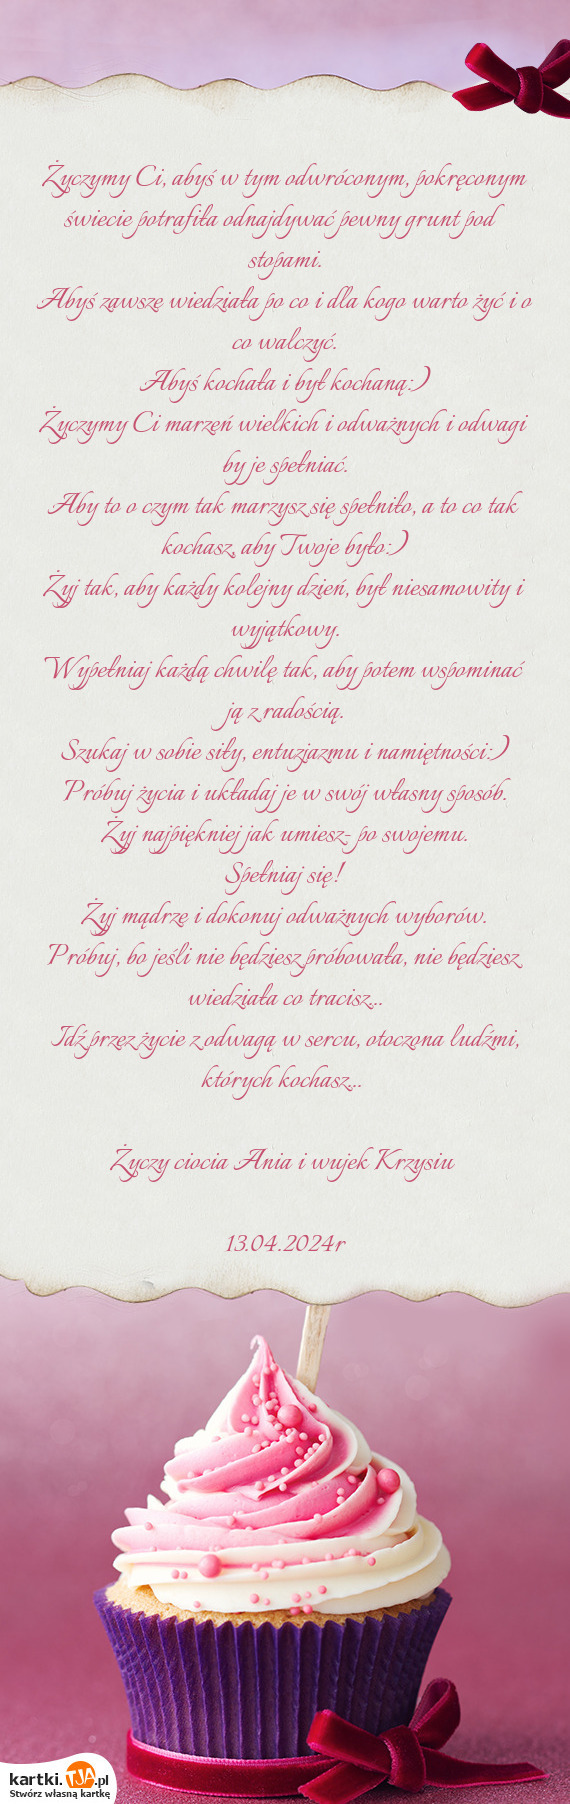 Życzymy Ci, abyś w tym odwróconym, pokręconym
świecie potrafiła odnajdywać pewny grunt pod
stopami.
Abyś zawsze wiedziała po co i dla kogo warto żyć i o
co walczyć.
Abyś kochała i był kochaną:)
Życzymy Ci marzeń wielkich i odważnych i odwagi
by je spełniać.
Aby to o czym tak marzysz się spełniło, a to co tak
kochasz, aby Twoje było:)
Żyj tak, aby każdy kolejny dzień, był niesamowity i
wyjątkowy.
Wypełniaj każdą chwilę tak, aby potem wspominać
ją z radością.
Szukaj w sobie siły, entuzjazmu i namiętności:)
Próbuj życia i układaj je w swój własny sposób.
Żyj najpiękniej jak umiesz- po swojemu.
Spełniaj się!
Żyj mądrze i dokonuj odważnych wyborów.
Próbuj, bo jeśli nie będziesz próbowała, nie będziesz
wiedziała co tracisz...
Idź przez życie z odwagą w sercu, otoczona ludźmi,
których kochasz...
Życzy ciocia Ania i wujek Krzysiu
13.04.2024r
kartki.TJA.pl
Stwórz własną kartkę